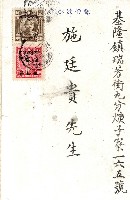 基隆鎮瑞芳街九分煉子寮一六五號
施廷貴先生